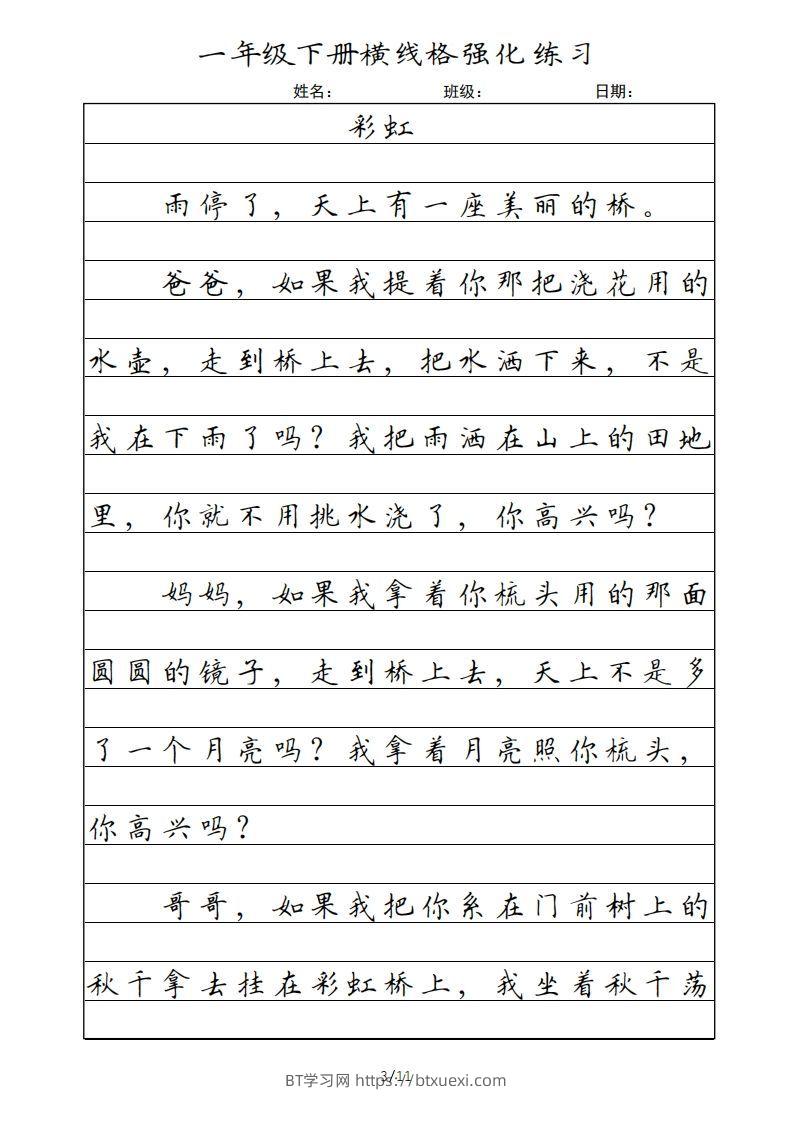 一年级下册横线格强化练习
姓名： 班级： 日期：
彩虹
雨停了，天上有一座美丽的桥。
爸爸，如果我提着你那把浇花用的
水壶，走到桥上去，把水洒下来，不是
我在下雨了吗？我把雨洒在山上的田地
里，你就不用挑水浇了，你高兴吗？
妈妈，如果我拿着你梳头用的那面
圆圆的镜子，走到桥上去，天上不是多
了一个月亮吗？我拿着月亮照你梳头，
你高兴吗？
哥哥，如果我把你系在门前树上的
秋千拿去挂在彩虹桥上，我坐着秋千荡
3/11
BT学习网 https://btxuexi.com